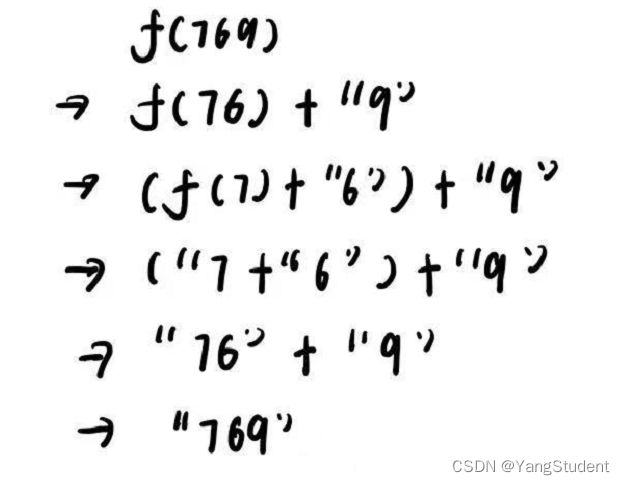 f(769)
→ f(76) + "9"
→ (f(7) + "6") + "9"
→ ("7 + "6") + "9"
→ "76" + "9"
→ "769"
CSDN @YangStudent